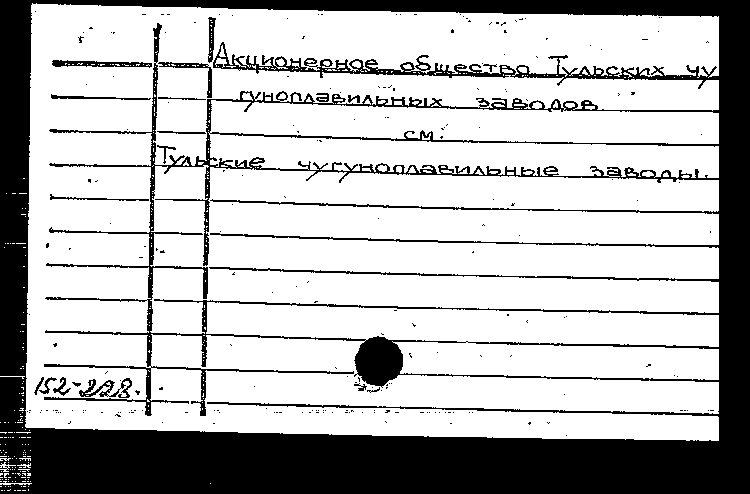 Акционерное общество Тульских чу
гуноплавильных заводов
см.
Тульские чугуноплавильные заводы.
152-228.